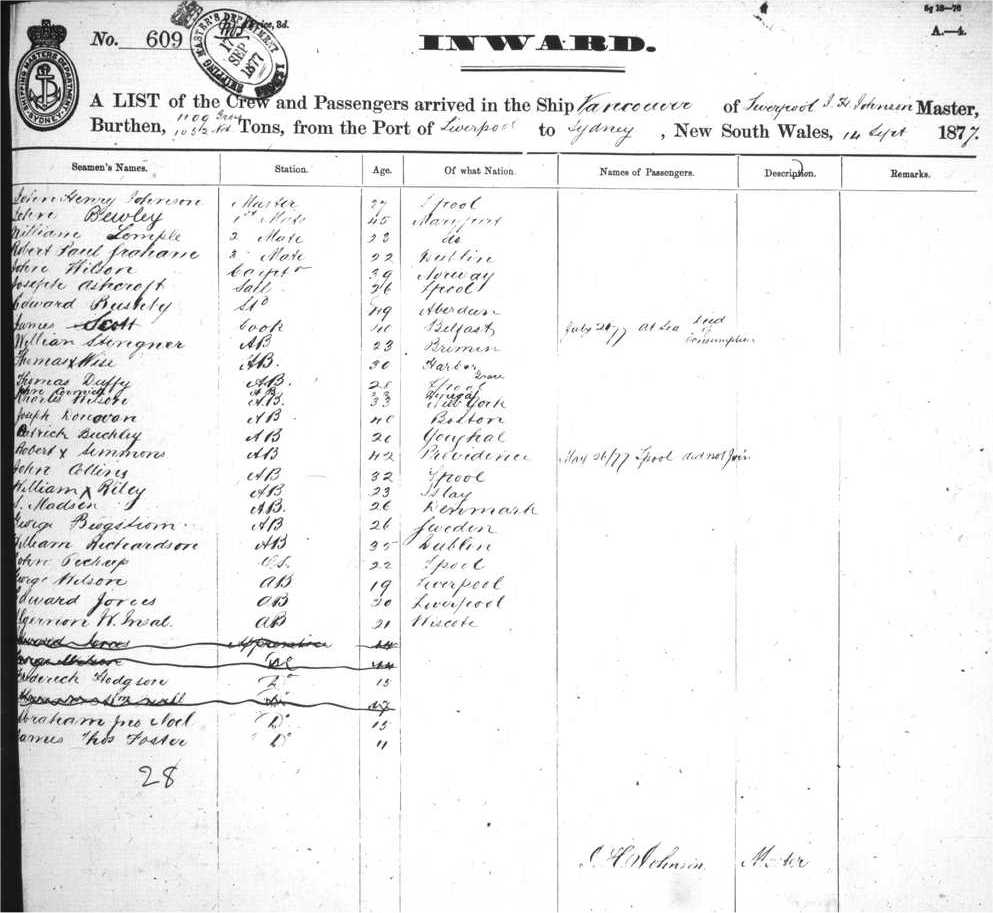 6g 18—76
No. 609
Price, 3d.
SHIPPING MASTER'S DEPARTMENT
17 SEP 1877
SHIPPING MASTERS DEPARTMENT SYDNEY
INWARD.
A.—4.
A LIST of the Crew and Passengers arrived in the Ship Vancouver of Liverpool J H Johnson Master,
Burthen, 1109 Tons, from the Port of Liverpool to Sydney, New South Wales, 14 Sept 1877.
Seamen's Names. Station. Age. Of what Nation. Names of Passengers. Description. Remarks.
John Henry Johnson Master 27 Lpool
John Bewley 1st Mate 45 Maryport
William Temple 2 Mate 23 do
Robert Paul Grahame Mate 22 Dublin
John Wilson Carptr 39 Norway
Joseph Ashcroft Sail 26 Lpool
Edward Std 49 Aberdeen
James Scott Cook 40 Belfast July 21/77 At Sea Died of Consumption
William Stingner AB 23 Bremen
Thomas x Wise AB. 30 Harbor Grace
Thomas Duffy AB. 20 Lpool
John AB
Charles Wilson A.B. 33 New York
Joseph Donovan AB 40 Boston
Patrick Buckley AB 20 Youghal
Robert x Simmons AB 42 Providence May 26/77 Lpool did not Join
John Collins AB 32 Lpool
William x Riley AB 23 Islay
Madsen A.B. 26 Denmark
George AB 26 Sweden
William Richardson AB 35 Dublin
John O.S. 22 Lpool
George Wilson AB 19 Liverpool
Edward Jones OB 20 Liverpool
Algernon W. AB 21
Edward Jones Apprentice
George Wilson Do
Frederick Hodgson Do 15
Do 17
Abraham Jno Noel Do 15
James Thos Foster Do 11
28
J. H. Johnson Master